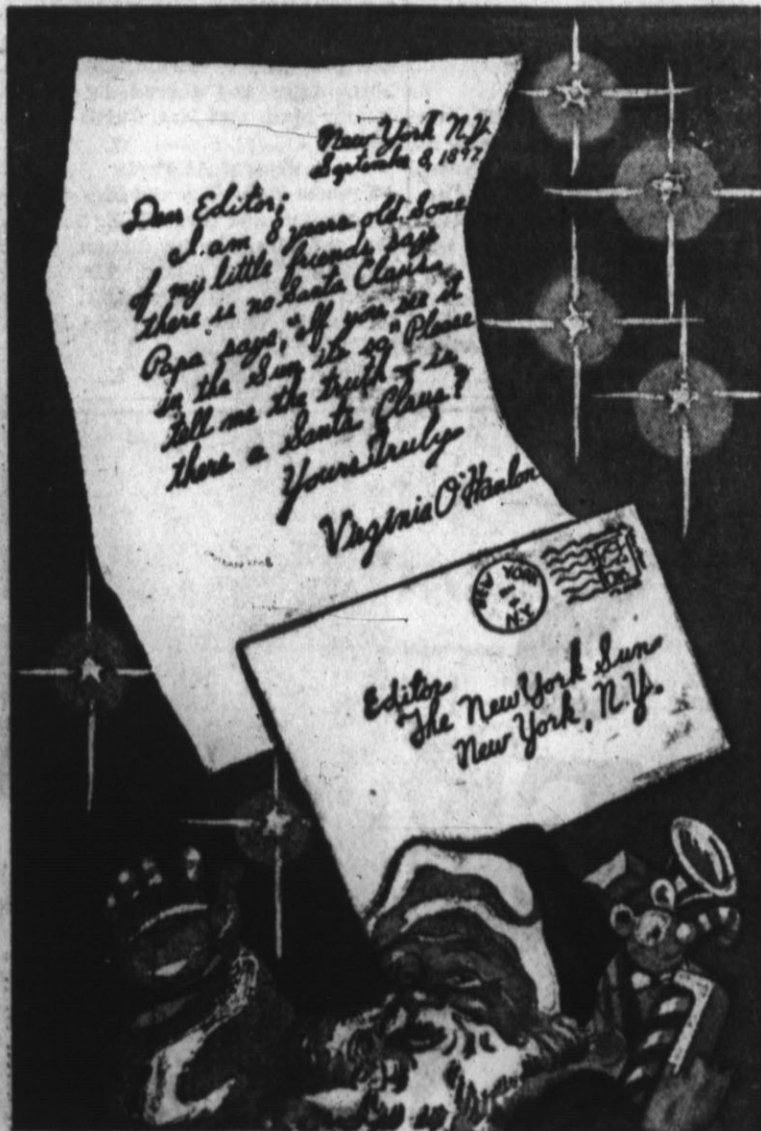 New York N.Y.
September 8, 1897
Dear Editor;
I am 8 years old. Some
of my little friends says
there is no Santa Claus.
Papa says, "If you see it
in the Sun its so." Please
tell me the truth – is
there a Santa Claus?
Yours Truly
Virginia O'Hanlon
NEW YORK
N.Y.
Editor
The New York Sun
New York, N.Y.